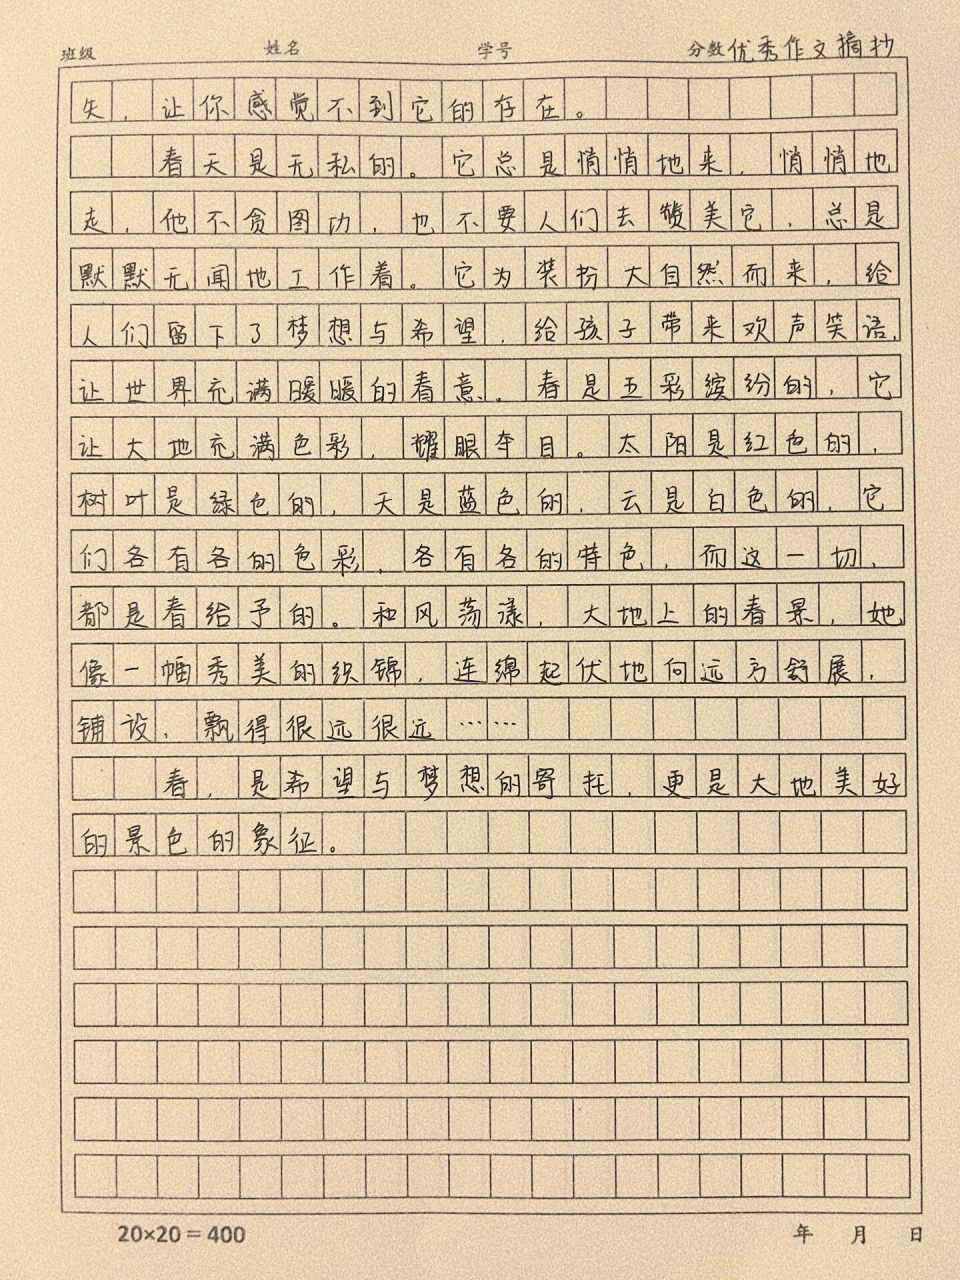 班级 姓名 学号 分数 优秀作文摘抄
失，让你感觉不到它的存在。
春天是无私的。它总是悄悄地来，悄悄地
走，他不贪图功，也不要人们去赞美它，总是
默默无闻地工作着。它为装扮大自然而来，给
人们留下了梦想与希望，给孩子带来欢声笑语，
让世界充满暖暖的春意。春是五彩缤纷的，它
让大地充满色彩，耀眼夺目。太阳是红色的，
树叶是绿色的，天是蓝色的，云是白色的，它
们各有各的色彩，各有各的特色，而这一切，
都是春给予的。和风荡漾，大地上的春景，她
像一幅秀美的织锦，连绵起伏地向远方舒展，
铺设，飘得很远很远……
春，是希望与梦想的寄托，更是大地美好
的景色的象征。
20×20=400 年 月 日